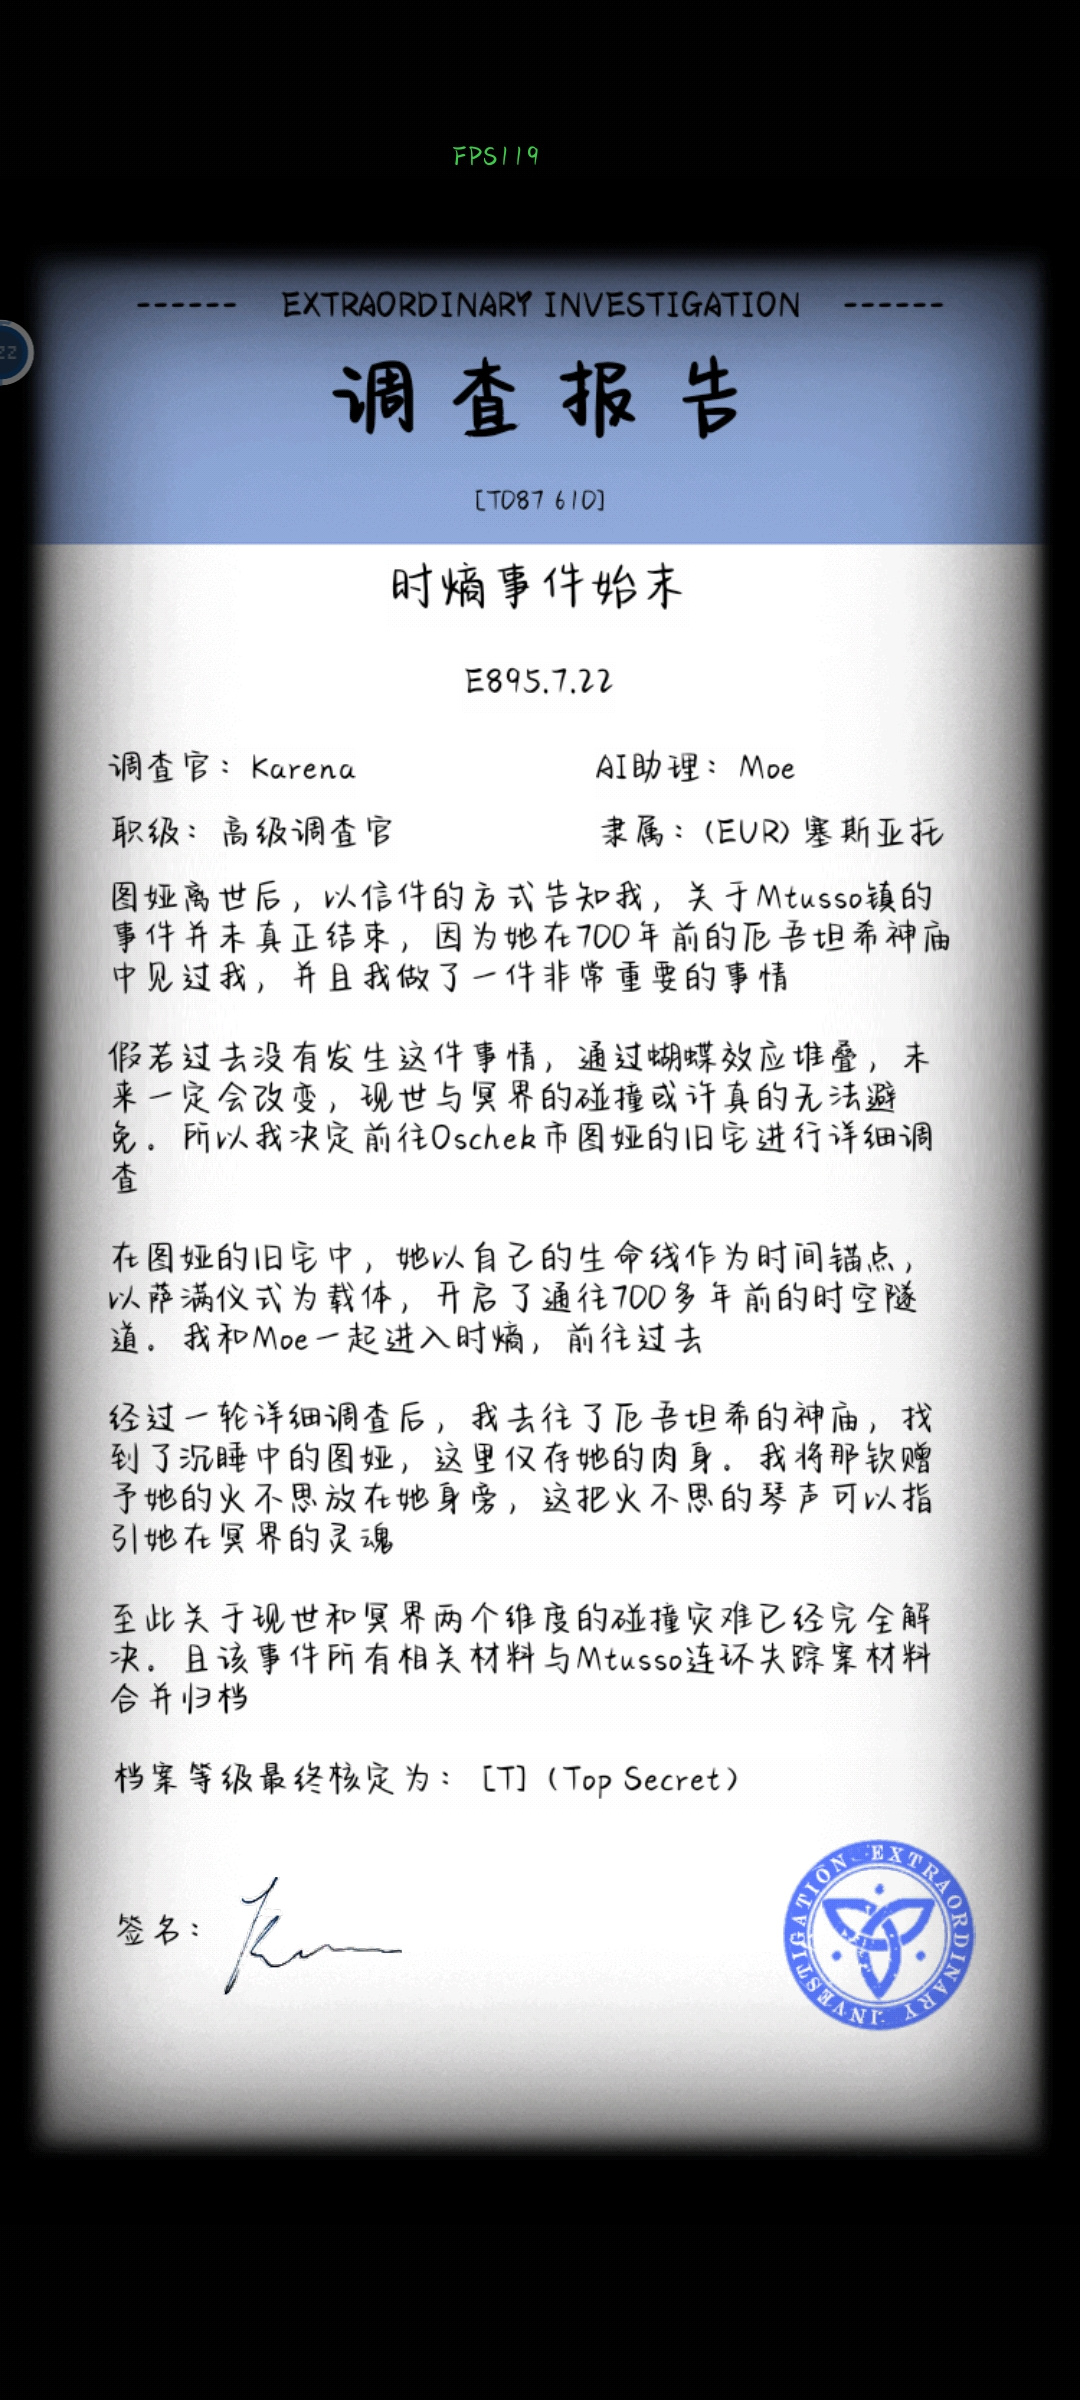 FPS119
------ EXTRAORDINARY INVESTIGATION ------
22
调查报告
[T087 610]
时熵事件始末
E895.7.22
调查官：Karena AI助理：Moe
职级：高级调查官 隶属：(EUR) 塞斯亚托
图娅离世后，以信件的方式告知我，关于Mtusso镇的
事件并未真正结束，因为她在700年前的厄吾坦希神庙
中见过我，并且我做了一件非常重要的事情
假若过去没有发生这件事情，通过蝴蝶效应堆叠，未
来一定会改变，现世与冥界的碰撞或许真的无法避
免。所以我决定前往Oschek市图娅的旧宅进行详细调
查
在图娅的旧宅中，她以自己的生命线作为时间锚点，
以萨满仪式为载体，开启了通往700多年前的时空隧
道。我和Moe一起进入时熵，前往过去
经过一轮详细调查后，我去往了厄吾坦希的神庙，找
到了沉睡中的图娅，这里仅存她的肉身。我将那钦赠
予她的火不思放在她身旁，这把火不思的琴声可以指
引她在冥界的灵魂
至此关于现世和冥界两个维度的碰撞灾难已经完全解
决。且该事件所有相关材料与Mtusso连环失踪案材料
合并归档
档案等级最终核定为：[T]（Top Secret）
签名：
EXTRAORDINARY INVESTIGATION